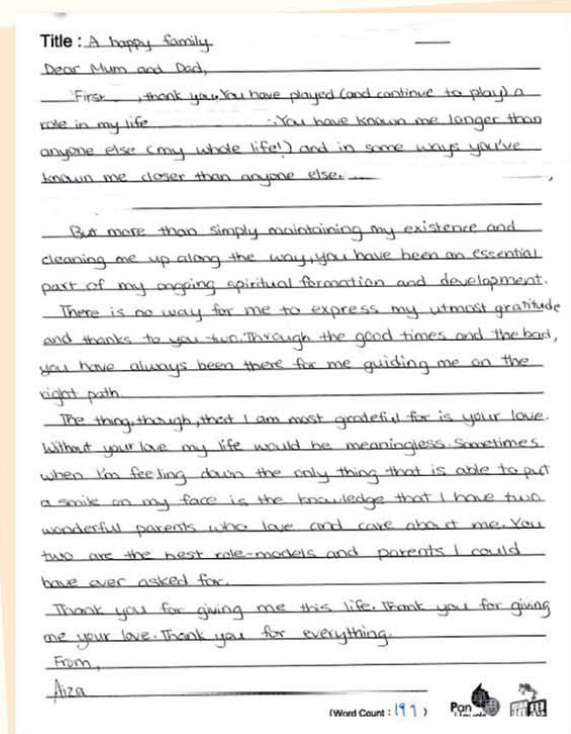 Title : A happy family
Dear Mum and Dad,
First , thank you. You have played (and continue to play) a
role in my life . You have known me longer than
anyone else (my whole life!) and in some ways you've
known me closer than anyone else.
But more than simply maintaining my existence and
cleaning me up along the way, you have been an essential
part of my ongoing spiritual formation and development.
There is no way for me to express my utmost gratitude
and thanks to you two. Through the good times and the bad,
you have always been there for me guiding me on the
right path.
The thing, though, that I am most grateful for is your love.
Without your love my life would be meaningless. Sometimes
when I'm feeling down the only thing that is able to put
a smile on my face is the knowledge that I have two
wonderful parents who love and care about me. You
two are the best role-models and parents I could
have ever asked for.
Thank you for giving me this life. Thank you for giving
me your love. Thank you for everything.
From,
Aiza
(Word Count : 199 ) Pan